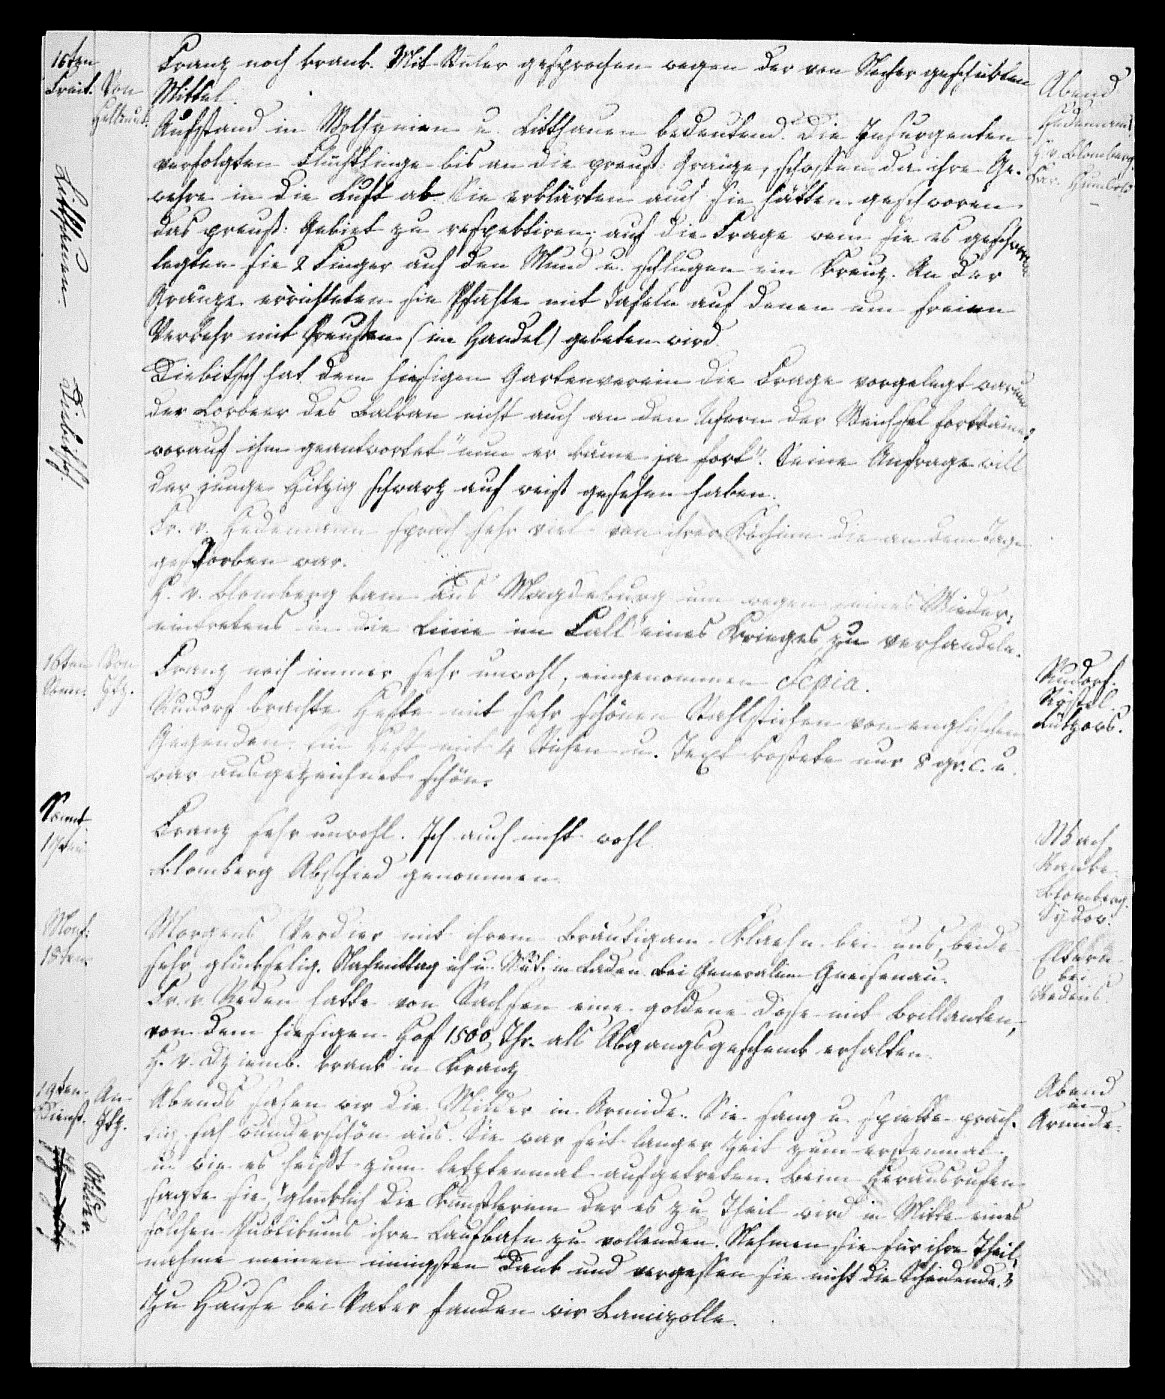 15ten
Freit. Von
Hellmut.
Franz noch krank. Mit Vater gesprochen wegen der von Stecher geschickten
Mittel.
Aufstand in Wolhynien u. Litthauen bedeutend. Die Insurgenten
verfolgten Flüchtlinge bis an die preuß: Gränze, schossen da ihre Ge-
wehre in die Luft ab. Sie erklärten auch sie hätten geschworen
das preuß: Gebiet zu respektiren; auf die Frage wem sie es geschworen
legten sie 2 Finger auf den Mund u. schlugen ein Kreuz. An der
Gränze errichteten sie Pfähle mit Tafeln auf denen um freien
Verkehr mit Preußen (im Handel) gebeten wird.
Diebitsch hat dem hiesigen Gartenverein die Frage vorgelegt warum
der Lorbeer des Balkan nicht auch an den Ufern der Weichsel fortkäme;
worauf ihm geantwortet "nun er käme ja fort". Seine Anfrage will
der junge Hitzig schwarz auf weiß gesehen haben.
Fr. v. Hedemann sprach sehr viel von ihrer Köchinn die an dem Tage
gestorben war.
H. v. Blomberg kam aus Magdeburg um wegen seines Wieder-
eintretens in die Linie im Fall eines Krieges zu verhandeln.
Litthauen
Diebitsch.
Abend
Hedemann
H. v. Blomberg
16ten Von
Sonn. Hz.
Franz noch immer sehr unwohl, eingenommen Sepia.
Rudorf brachte Hefte mit sehr schönen Stahlstichen von englischen
Gegenden. ein Heft mit 4 Stichen u. Text kostete nur 8 gr. C. u.
war ausgezeichnet schön.
Rudorf.
Lützows.
17ten
Franz sehr unwohl. Ich auch nicht wohl
Blomberg Abschied genommen.
Blomberg.
Sydow.
Mont:
18ten
Morgens Verdier mit ihrem Bräutigam Klaehn bei uns, beide
sehr glückselig. Nachmittag ich u. Mut. in Baden bei Generalin Gneisenau.
Fr. v Reden hatte von Sachsen eine goldene Dose mit Brillanten,
von dem hiesigen Hof 1500 Thr. als Abgangsgeschenk erhalten.
H. v. krank in Kranz
Eltern
bei
Redens
19ten An
Dienst. Hz.
Abends sahen wir die Milder in Armide. Sie sang u. spielte präch-
tig, sah wunderschön aus. Sie war seit langer Zeit zum erstenmal
u. wie es heißt zum letztenmal aufgetreten. Beim Herausrufen
sagte sie, "glücklich die Künstlerinn der es zu Theil wird in Mitte eines
solchen Publikums ihre Laufbahn zu vollenden. Nehmen sie für ihre Theil-
nahme meinen innigsten Dank und vergessen sie nicht die Scheidende."
Zu Hause bei Vater fanden wir Lancizolle.
Milder.
Abend
in
Armide.